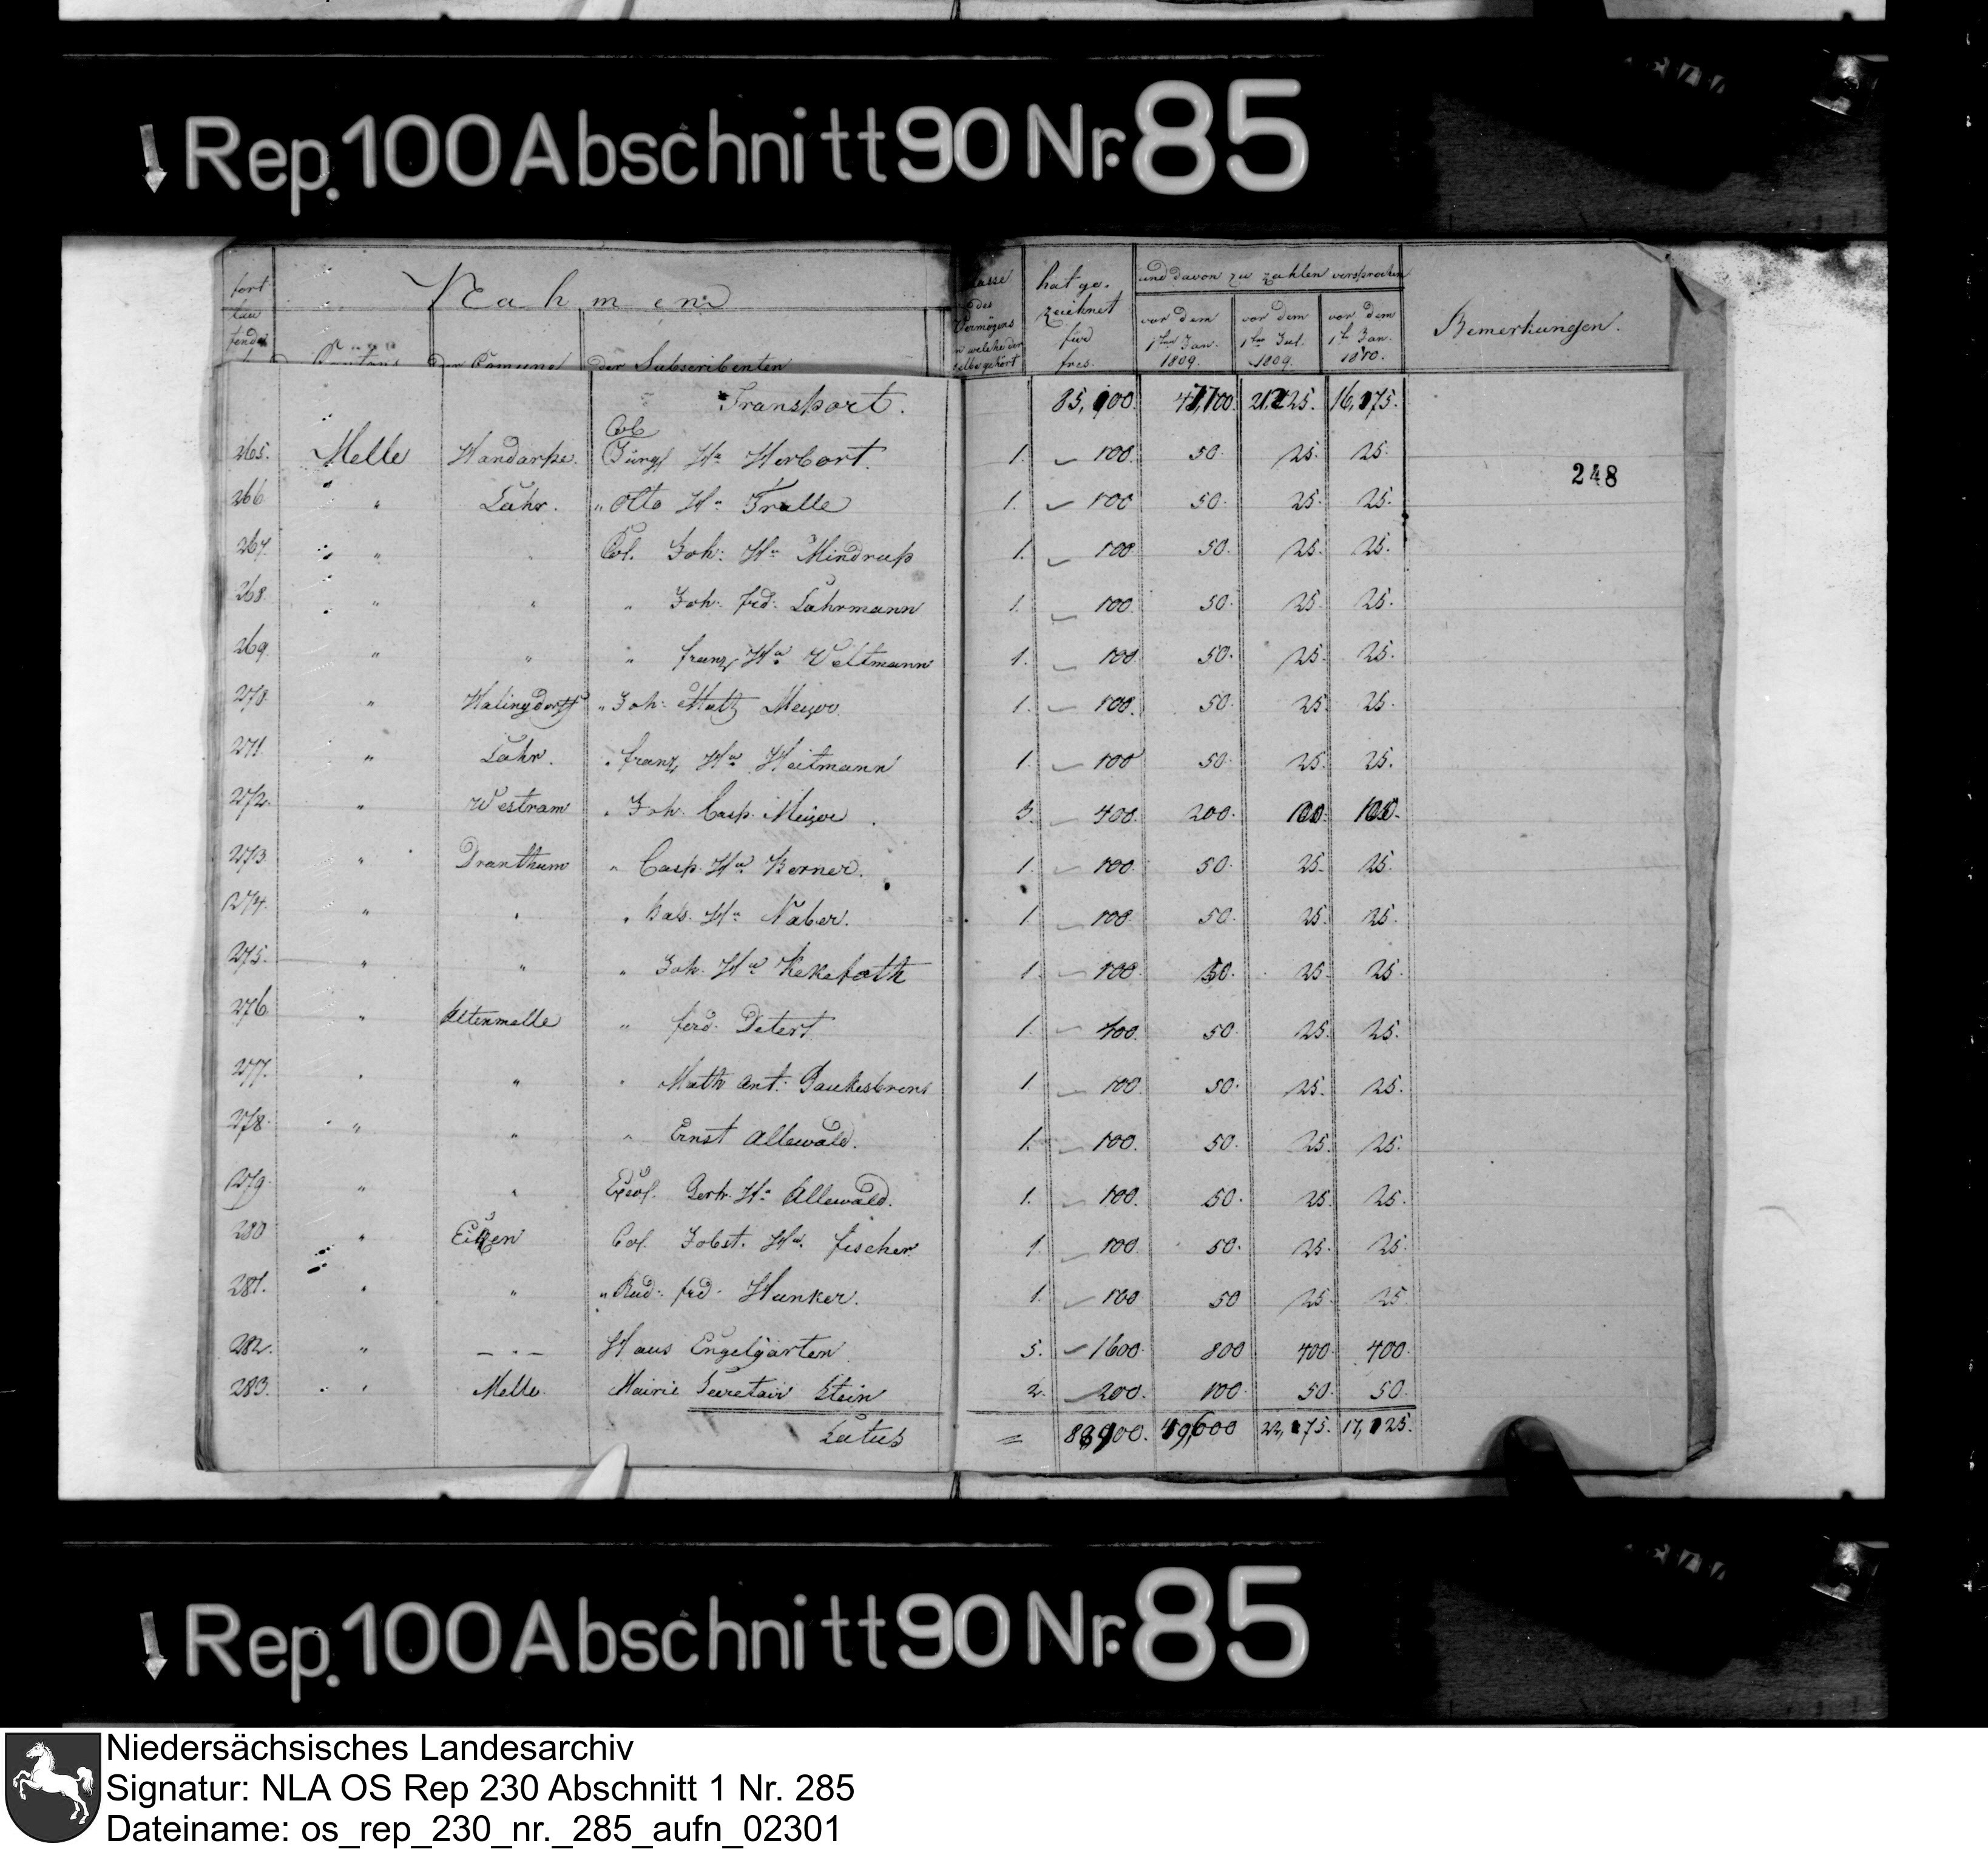 Rep. 100 Abschnitt 90 Nr. 85
Nahmen
hat ge-
zeichnet
für
frcs.
und davon zu zahlen versprochen
vor dem 1ten Jan. 1809.
vor dem 1ten Jul. 1809.
vor dem 1ten Jan. 1810.
Bemerkungen.
der Comune der Subscribenten
Transport.
248
265. Melle Handarpe. Col Jürg Hr Herbort. 1. 100. 50. 25. 25.
266 " Lahr. " Otto Hr Tralle 1. 100 50. 25. 25.
267. " Col. Joh: Hr Mindrup 1. 100 50. 25. 25.
268. " " " Joh: frd: Lahrmann 1. 100. 50. 25. 25.
269. " " " franz Hr Veltmann 1. 100. 50. 25. 25.
270. " " Joh: Matz Meyer 1. 100. 50. 25. 25.
271. " Lahr. " franz Hr Heitmann 1. 100 50. 25. 25.
272. " Westram " Joh. Casp. Meyer 3. 400. 200. 100. 100.
273. " Dranthum " Casp. Hr Berner. 1. 100. 50. 25. 25.
274. " " " Hr Naber. 1. 100. 50. 25. 25.
275. " " " Joh. Hr 1. 100. 50. 25. 25.
276. " Altenmelle " ferd. Detert 1. 100. 50. 25. 25.
277. " " " Math Ant: 1. 100. 50. 25. 25.
278. " " " Ernst Allewald. 1. 100. 50. 25. 25.
279. " " Gerh. Hr Allewald. 1. 100. 50. 25. 25.
280 " Eicken Col. Jobst. Hr. fischer 1. 100. 50. 25. 25.
281. " " " Rud: frd. Hunker. 1. 100 50 25. 25.
282. " - " - Haus Engelgarten 5. 1600. 800 400. 400.
283. " Melle. Mairie Secretair Stein 2. 200. 100. 50. 50.
Latus
Rep. 100 Abschnitt 90 Nr. 85
Niedersächsisches Landesarchiv
Signatur: NLA OS Rep 230 Abschnitt 1 Nr. 285
Dateiname: os_rep_230_nr._285_aufn_02301